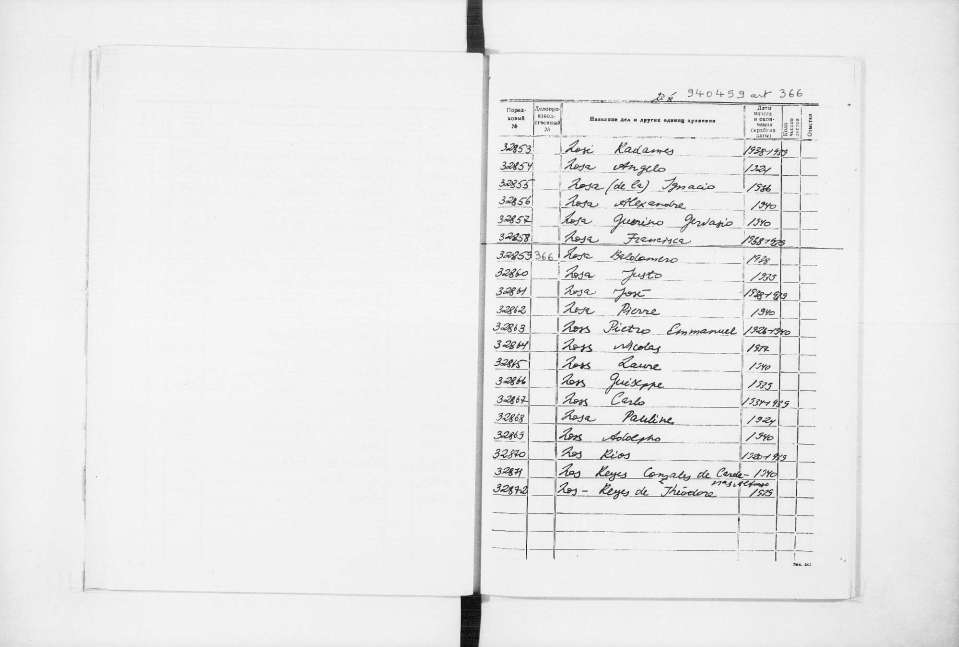 940459 art 366
Поряд-ковый № Делопро-извод-ственный № Название дел и других единиц хранения Дата начала и окон-чания (крайние даты) Отметки
32853 Losi Radames 1938-1939
32854 Losa Angelo 1921
32855 Losa (de la) Ignacio 1936
32856 Losa Alexandre 1940
32857 Losa Guerino Gervasio 1940
32858 Losa Francisca 1938-1939
32859 366 Losa Baldomero 1938
32860 Losa Justo 1939
32861 Losa José 1938-1939
32862 Losa Pierre 1940
32863 Loss Pietro Emmanuel 1926-1940
32864 Loss Nicolas
32865 Loss Laure 1940
32866 Loss Guiseppe 1939
32867 Loss Carlo 1934-1939
32868 Losa Pauline 1921
32869 Loss Adolpho 1940
32870 Los Rios
32871 Los Reyes Gonzales de Carde- 1940
nas Alfonso
32872 Los - Reyes de Théodora 1939